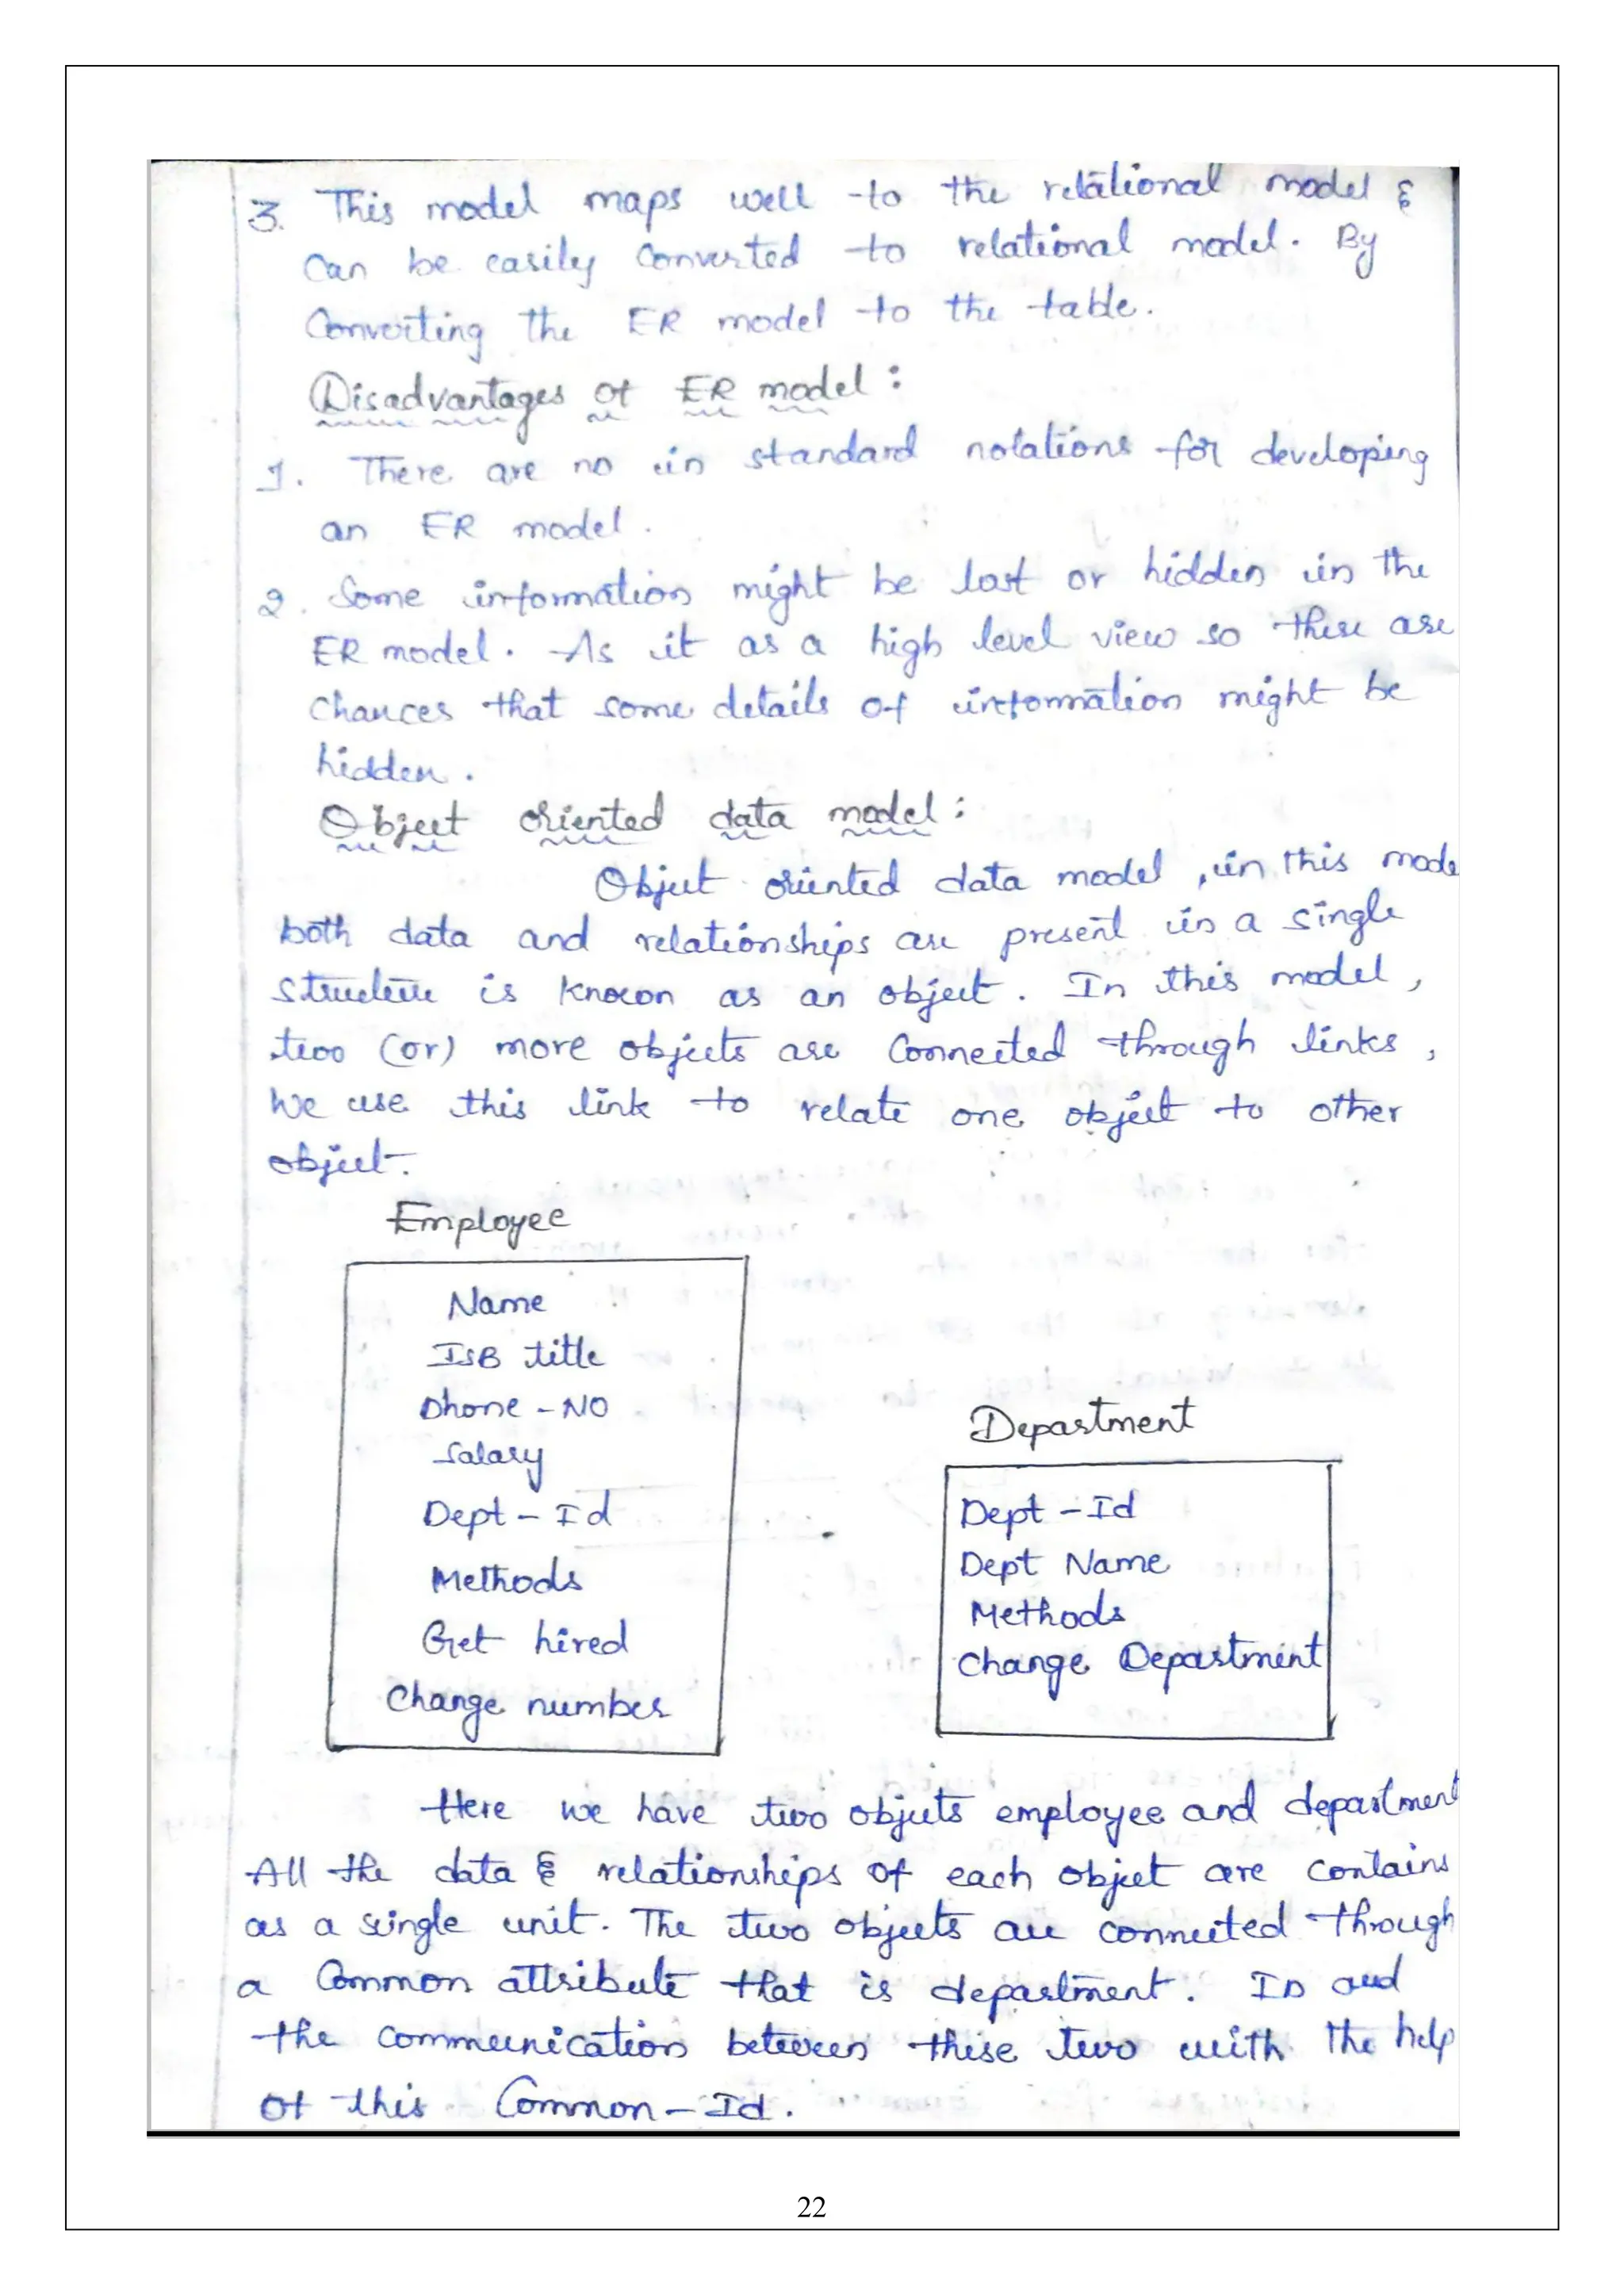 3. This model maps well to the relational model &
can be easily converted to relational model. By
Converting the ER model to the table.
Disadvantages of ER model :
1. There are no in standard notations for developing
an ER model.
2. Some information might be lost or hidden in the
ER model. As it as a high level view so there are
chances that some details of information might be
hidden.
Object oriented data model :
Object oriented data model, in this mode
both data and relationships are present in a single
structure is known as an object. In this model,
two (or) more objects are connected through links,
We use this link to relate one object to other
object.
Employee
Name
IsB title
Phone - NO
Salary
Dept - Id
Methods
Get hired
Change number
Department
Dept - Id
Dept Name
Methods
Change Department
Here we have two objects employee and department
All the data & relationships of each object are contains
as a single unit. The two objects are connected through
a Common attribute that is department. ID and
the communication between these two with the help
of this Common - Id.
22